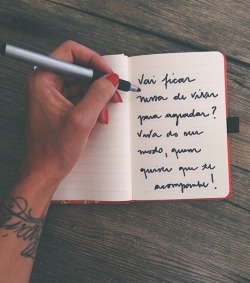 Vai ficar
nessa de virar
para agradar?
Viva do seu
modo, quem
quiser que te
acompanhe!